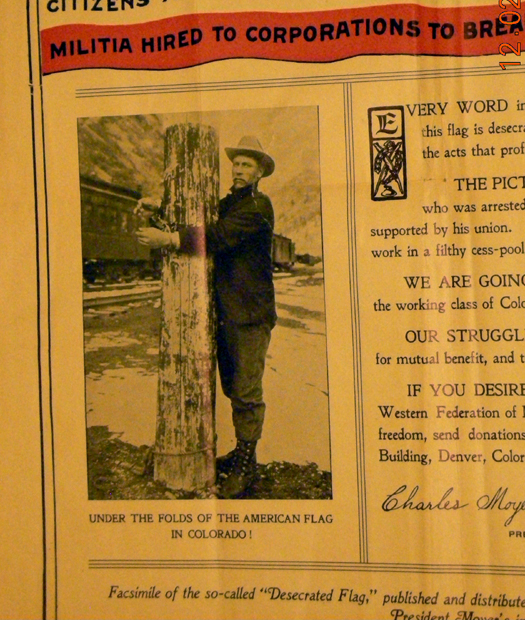 CITIZENS'
MILITIA HIRED TO CORPORATIONS TO
12.02
EVERY WORD
this flag is
the acts that
THE
who was arrested
supported by his union.
work in a filthy cess-pool
WE ARE
the working class of
OUR
for mutual benefit, and
IF YOU DESIRE
Western Federation of
freedom, send donations
Building, Denver,
Charles
UNDER THE FOLDS OF THE AMERICAN FLAG
IN COLORADO!
Facsimile of the so-called "Desecrated Flag," published and
President Moyer's